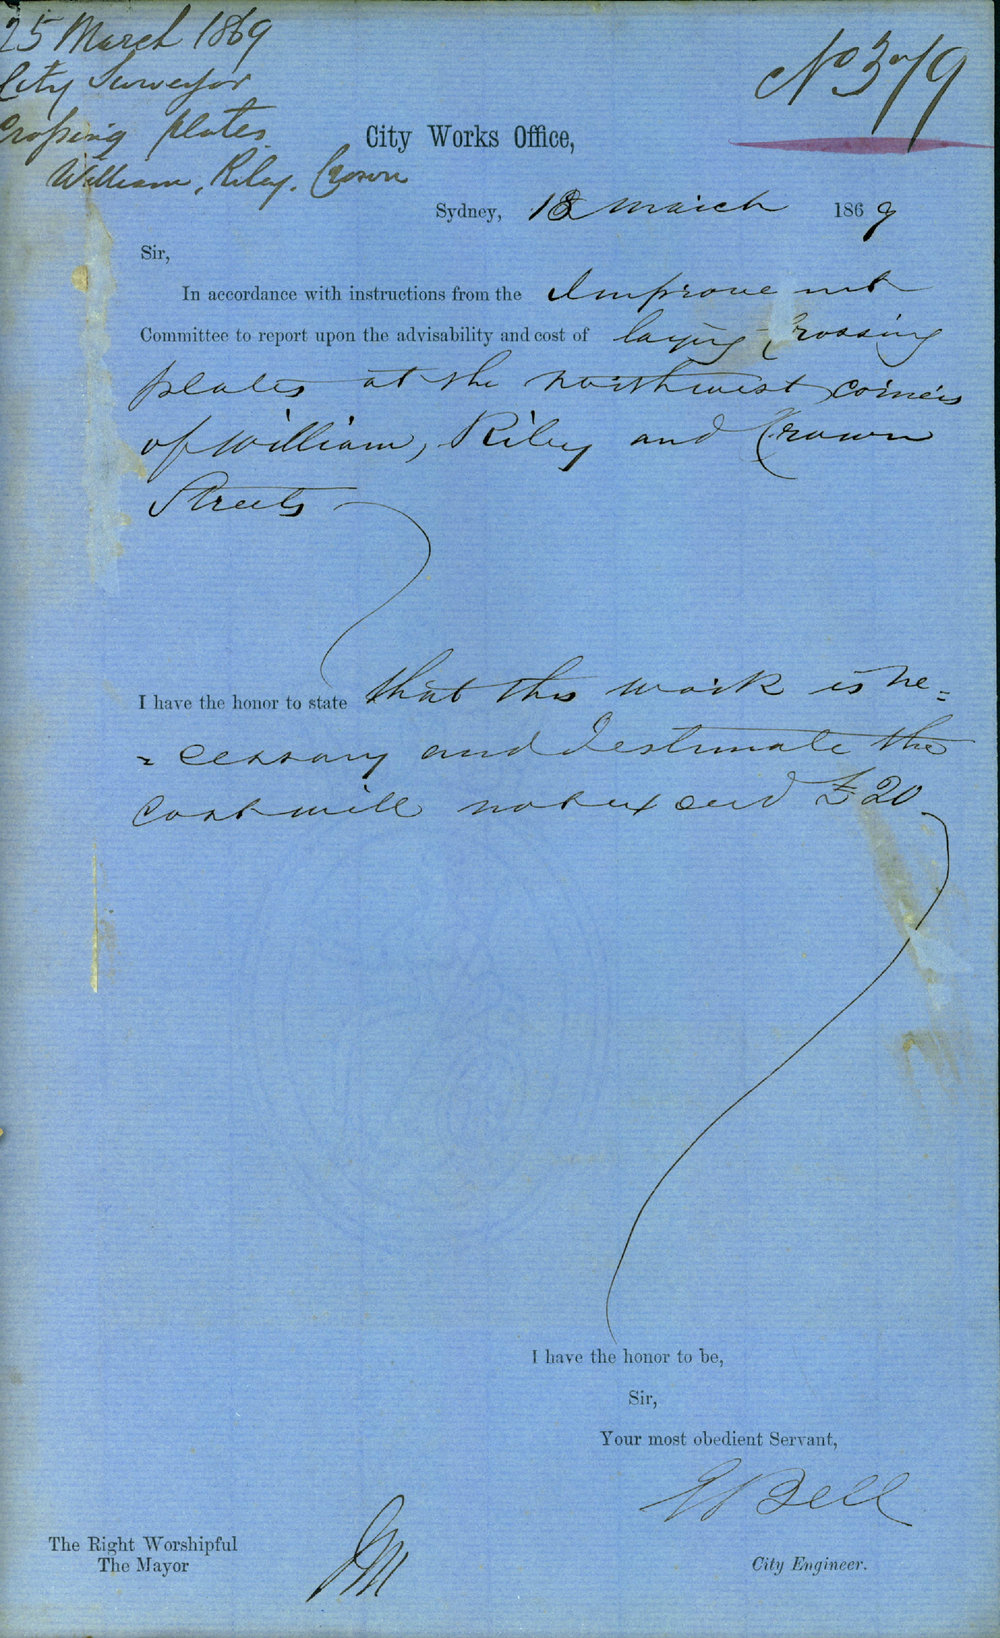 25 March 1869
City Surveyor
Crossing plates
William, Riley, Crown
No 379
City Works Office,
Sydney, 18 March 1869
Sir,
In accordance with instructions from the Improvement
Committee to report upon the advisability and cost of laying Crossing
plates at the northwest corners
of William, Riley and Crown
Streets
I have the honor to state that this work is ne=
=cessary and I estimate the
cost will not exceed £20
I have the honor to be,
Sir,
Your most obedient Servant,
E Bell
The Right Worshipful
The Mayor
City Engineer.